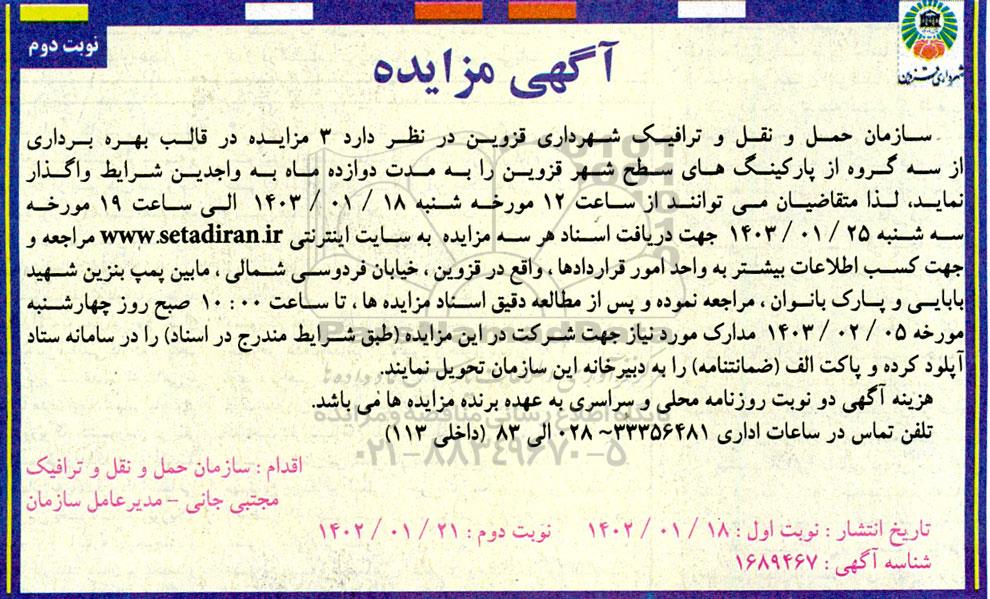 شهرداری قزوین
نوبت دوم
آگهی مزایده
سازمان حمل و نقل و ترافیک شهرداری قزوین در نظر دارد ۳ مزایده در قالب بهره برداری
از سه گروه از پارکینگ های سطح شهر قزوین را به مدت دوازده ماه به واجدین شرایط واگذار
نماید، لذا متقاضیان می توانند از ساعت ۱۲ مورخه شنبه ۱۸ / ۰۱ / ۱۴۰۳ الی ساعت ۱۹ مورخه
سه شنبه ۲۵ / ۰۱ / ۱۴۰۳ جهت دریافت اسناد هر سه مزایده به سایت اینترنتی www.setadiran.ir مراجعه و
جهت کسب اطلاعات بیشتر به واحد امور قراردادها ، واقع در قزوین ، خیابان فردوسی شمالی ، مابین پمپ بنزین شهید
بابایی و پارک بانوان ، مراجعه نموده و پس از مطالعه دقیق اسناد مزایده ها ، تا ساعت ۱۰:۰۰ صبح روز چهارشنبه
مورخه ۰۵ / ۰۲ / ۱۴۰۳ مدارک مورد نیاز جهت شرکت در این مزایده (طبق شرایط مندرج در اسناد) را در سامانه ستاد
آپلود کرده و پاکت الف (ضمانتنامه) را به دبیرخانه این سازمان تحویل نمایند.
هزینه آگهی دو نوبت روزنامه محلی و سراسری به عهده برنده مزایده ها می باشد.
تلفن تماس در ساعات اداری ۳۳۳۵۶۴۸۱~ ۰۲۸ الی ۸۳ (داخلی ۱۱۳)
۰۲۱-۸۸۳۴۹۶۷۰-۵
اقدام : سازمان حمل و نقل و ترافیک
مجتبی جانی – مدیرعامل سازمان
تاریخ انتشار : نوبت اول : ۱۸ / ۰۱ / ۱۴۰۲ نوبت دوم : ۲۱ / ۰۱ / ۱۴۰۲
شناسه آگهی : ۱۶۸۹۴۶۷